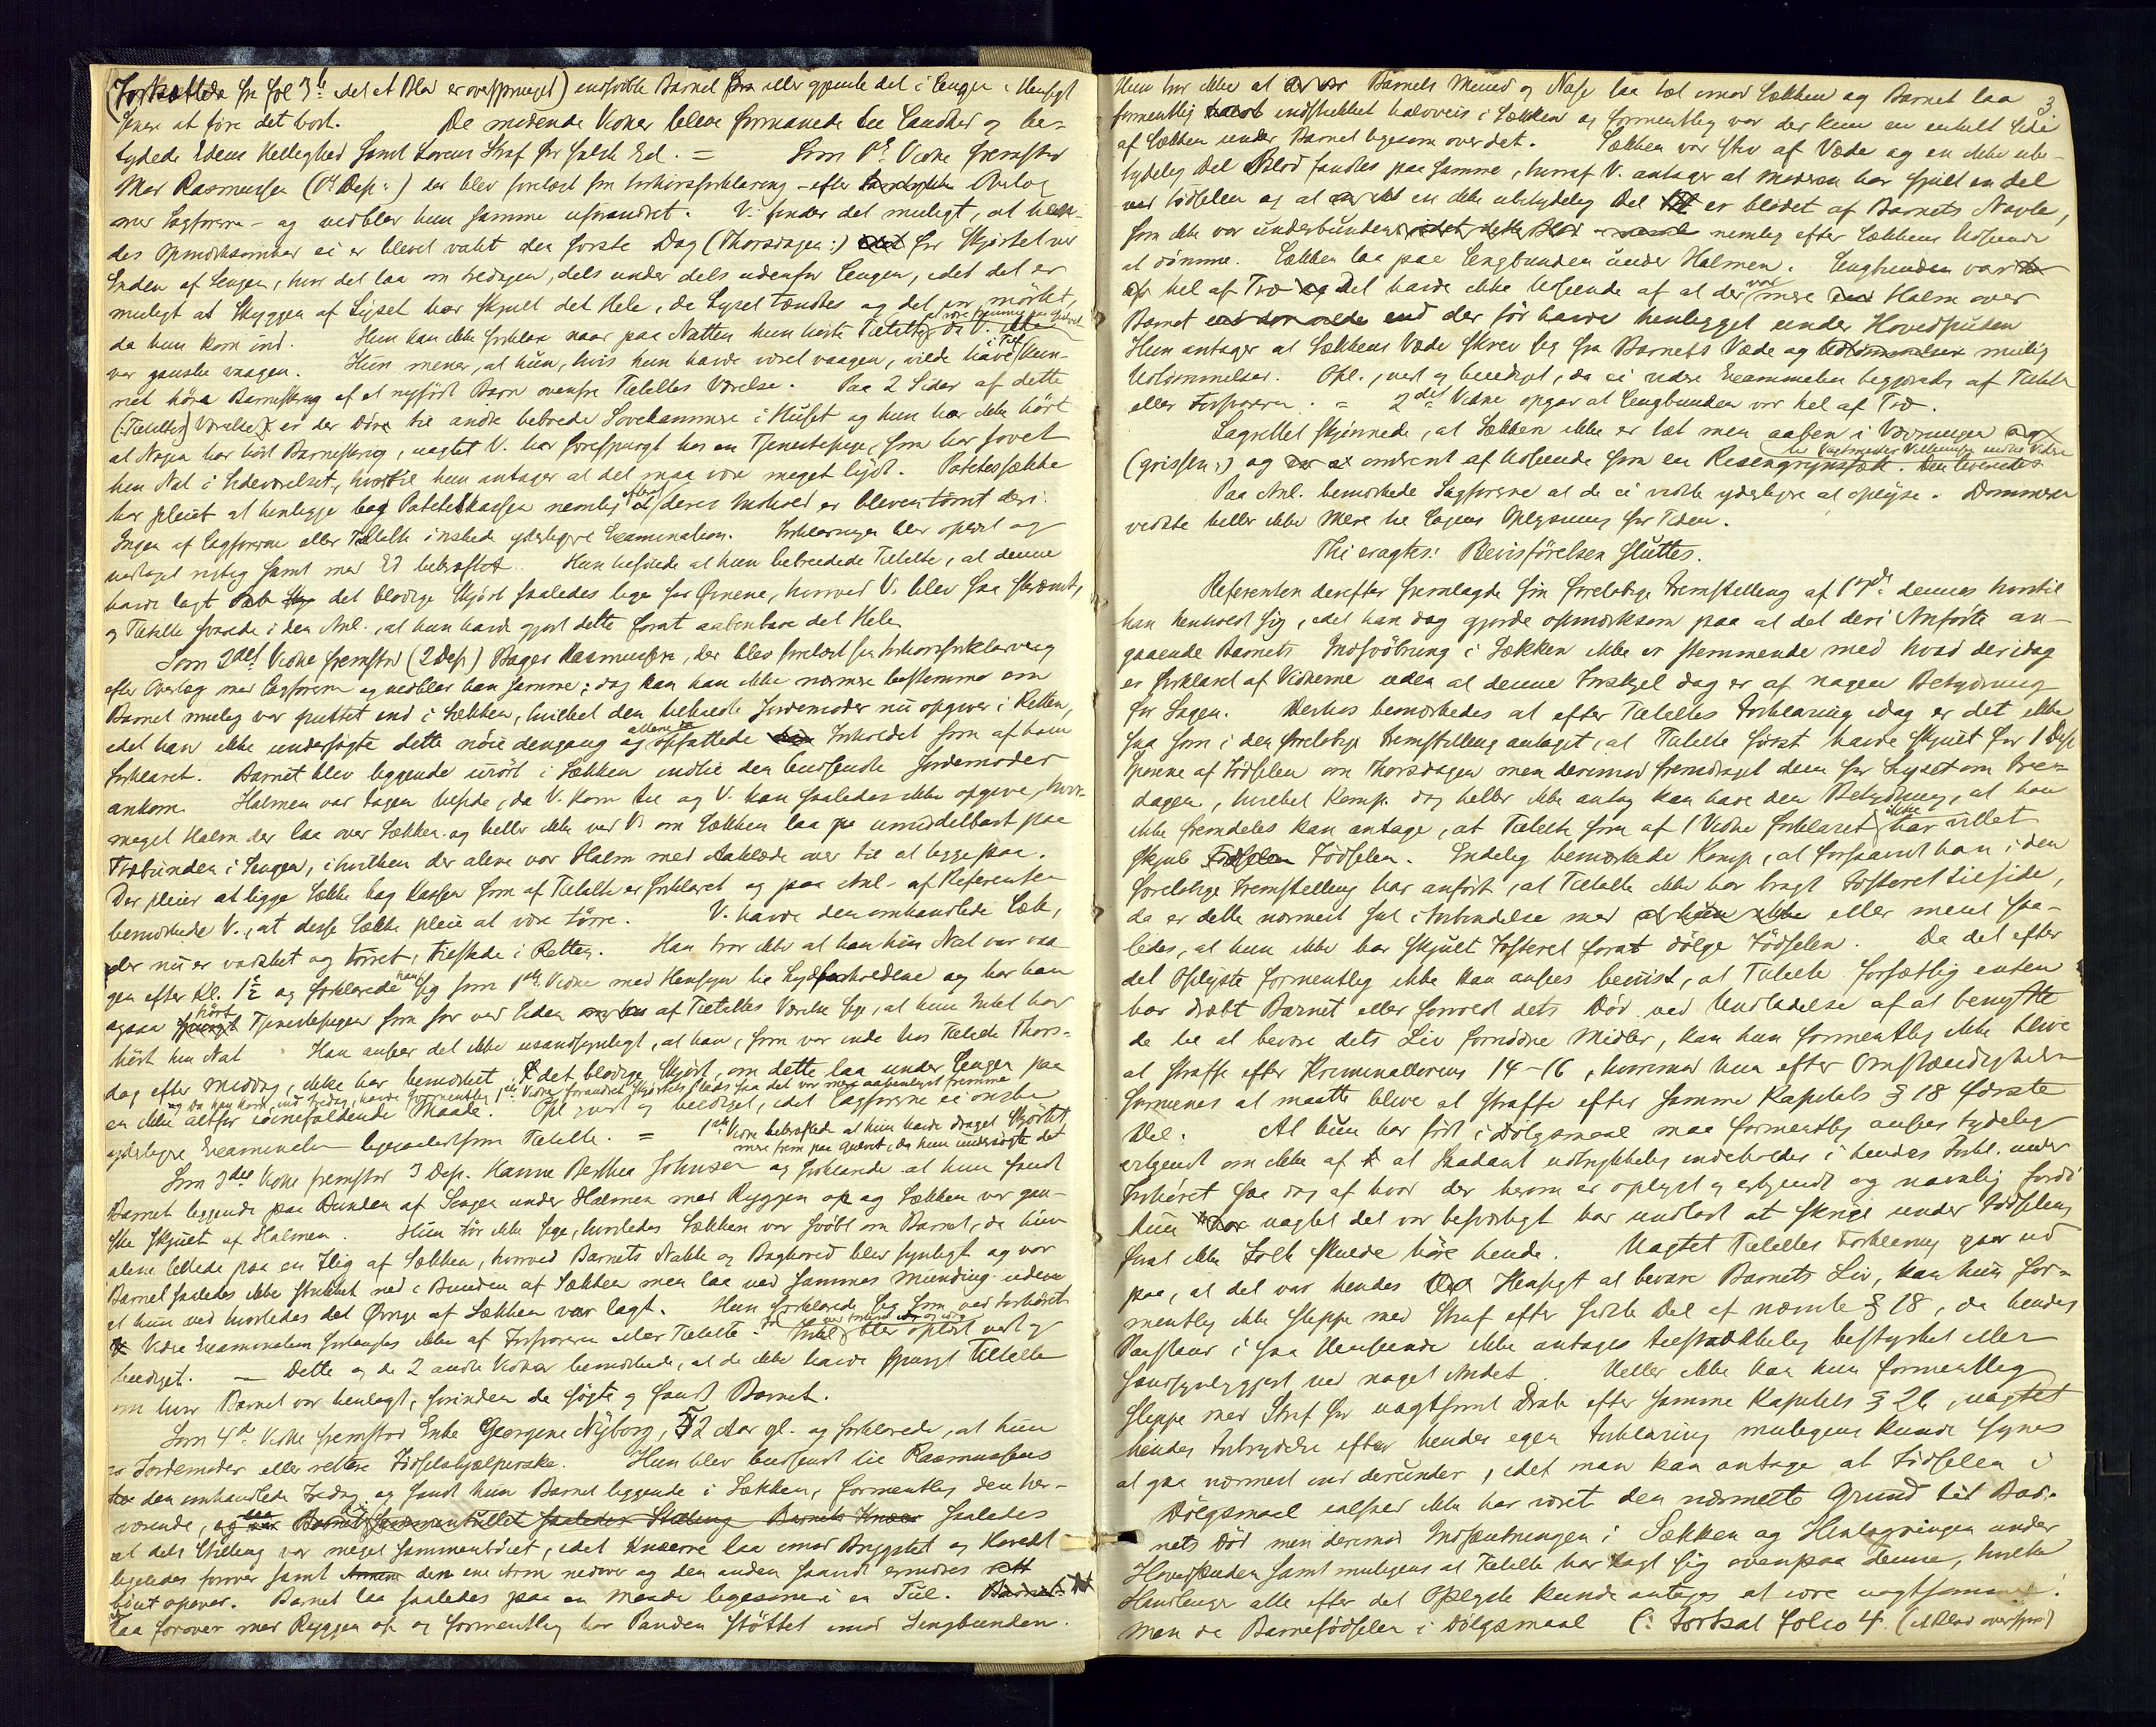 (Fortsættelse fra fol 3b idet et Blad er oversprunget) indsvøbte Barnet eller gjemte det i Sengen i Hensigt
senere at føre det bort. De mødende Vidner bleve formanede til Sandhed og be-
tydede Edens Hellighed samt Lovens Straf for falsk Ed. = Som 1ste Vidne fremstod
Mad Rasmussen (1ste Dep:) der blev forelæst sin Forhørsforklaring - efter Oplæs
med Sagførerne - og vedblev hun samme uforandret. V. finder det muligt, at hen-
des Opmærksomhed ei er blevet vakt den første Dag (Thorsdagen:) for Skjørtet ved
Enden af Sengen, hvor det laa om Fredagen, dels under dels udenfor Sengen, idet det er
muligt at Skyggen af Lyset har skjult det Hele, da Lyset tændtes og det var mörket,
da hun kom ind. Hun kan ikke forklare naar paa Natten hun hørte Tiltalte, da V. ikke
var ganske vaagen. Hun mener, at hun, hvis hun havde været vaagen, vilde have kun-
net høre Barneskrig af et nyfødt Barn ovenfra Tiltaltes Værelse. Paa 2 Sider af dette
(Tiltaltes Værelse) er der Døre til andre beboede Sovekammere i Huset og hun har ikke hört
at Nogen har hört Barneskrig, uagtet V. har forespurgt hos en Tjenestepige, som har sovet
hen Nat i Sideværelset, hvortil hun antager at det maa være meget lydt. Potetessække
har pleiet at henligge bag Poteteskassen nemlig efterat deres Indhold er bleven tömt deri.
Ingen af Sagførerne eller Tiltalte önskede yderligere Examination. Forklaringen blev oplæst og
vedtaget rigtig samt med Ed bekræftet. Hun tilføiede at hun bebreidede Tiltalte, at denne
havde lagt det blodige Skjört saaledes lige for Øinene, hvorved V. blev saa skræmt,
og Tiltalte svarede i den Anl., at hun havde gjort dette forat aabenbare det Hele.
Som 2det Vidne fremstod (2 Dep) Bager Rasmussen, der blev forelæst sin Forhørsforklaring
efter Oplæs med Sagførerne og vedblev han samme; dog kan han ikke nærmere bestemme om
Barnet mulig var puttet ind i Sækken, hvilket den tilkaldte Jordemoder nu opgiver i Retten,
idet han ikke undersøgte dette nøie dengang og opfattede Forholdet som af ham
forklaret. Barnet blev liggende urört i Sækken indtil den budsendte Jordemoder
ankom. Halmen var tagen tilside, da V. kom til og V. kan saaledes ikke opgive, hvor-
meget Halm der laa over Sækken og heller ikke ved V. om Sækken laa umiddelbart paa
Træbunden i Sengen, i hvilken der alene var Halm med Aaklæde over til at ligge paa.
Der pleier at ligge Sække bag Kassen som af Tiltalte er forklaret og paa Anl. af Referenten
bemærkede V., at disse Sække pleie at være tørre. V. havde den omhandlede Sæk,
der nu er vasket og törret, tilstede i Retten. Han tror ikke at han hin Nat var vaa-
gen efter Kl. 1½ og forklarede han sig som 1ste Vidne med Hensyn til Lydforholdene og har han
ogsaa hört Tjenestepigen som sov ved Siden af Tiltaltes Værelse sige, at hun Intet har
hört hin Nat. Han anser det ikke usandsynligt, at han, som var inde hos Tiltalte Thors-
dag efter Middag, ikke har bemærket det blodige Skjört, om dette laa under Sengen paa
en ikke altfor iøinefaldende Maade. Opl. vedt. og beediget, idet Sagførerne ei ønskede
yderligere Examination ligesaalidt som Tiltalte. = 1ste Vidne bekræftede at hun havde draget Skjørtet
mere frem paa Gulvet, da hun undersøgte det
Som 3die Vidne fremstod 3 Dep. Hanne Berthea Johnsen og forklarede at hun fandt
Barnet liggende paa Bunden af Sengen under Halmen med Ryggen op og Sækken var gan-
ske skjult af Halmen. Hun tör ikke sige, hvorledes Sækken var svöbt om Barnet, da hun
alene lettede paa en Flig af Sækken, hvorved Barnets Nakke og Baghoved blev synligt og var
Barnet saaledes ikke stukket ned i Bunden af Sækken men laa ved sammes Munding uden
at hun ved hvorledes det Øvrige af Sækken var lagt. Hun forklarede sig som ved Forhöret
Videre Examination forlangtes ikke af Forsvareren eller Tiltalte. blev oplæst vedt. og
beediget. — Dette og de 2 andre Vidner bemærkede, at de ikke havde spurgt Tiltalte
om hvor Barnet var henlagt, forinden de søgte og fandt Barnet.
Som 4de Vidne fremstod Enke Georgine Nyborg, 52 Aar gl. og forklarede, at hun
er Jordemoder eller rettere Födselshjælperske. Hun blev budsendt til Rasmussens
den omhandlede Fredag og fandt hun Barnet liggende i Sækken, formentlig den her-
værende, og saaledes
at dets Stilling var meget sammenböiet, idet Knæerne laa imod Brystet og Hovedet
ligeledes forover samt den ene Arm nedover og den anden Haand
böiet opover. Barnet laa saaledes paa en Maade ligesom i en Tul.
laa forover med Ryggen op og formentlig har Panden støttet imod Sengbunden.
3
Hun tror ikke at Barnets Mund og Næse laa tæt imod Sækken og Barnet laa
formentlig indstukket halvveis i Sækken og formentlig var der kun en enkelt Side
af Sækken under Barnet ligesom over det. Sækken var stiv af Væde og en ikke ube-
tydelig Del Blod fandtes paa samme, hvoraf V. antager at Moderen har spildt en Del
ved Födselen og at en ikke ubetydelig Del er blödet af Barnets Navle,
som ikke var underbunden nemlig efter Sækkens Udseende
at dömme. Sækken laa paa Sengbunden under Halmen. Sengbunden var
hel af Træ. Det havde ikke Udseende af at der var mere Halm over
Barnet end der för havde henligget under Hovedpuden
Hun antager at Sækkens Væde skrev sig fra Barnets Væde og mulig
Udtømmelser. Opl., vedt. og beediget, da ei videre Examination begjæredes af Tiltalte
eller Forsvareren. = 2det Vidne opgav at Sengbunden var hel af Træ.
Lagrettet skjønnede, at Sækken ikke er tæt men aaben i Vævningen
(grissen:) og omtrent af Udseende som en Risengrynssæk. Den leveredes
Paa Anl. bemærkede Sagførerne at de ei vidste yderligere at oplyse. Dommeren
vidste heller ikke Mere til Sagens Oplysning for Tiden.
Thi eragtes: Bevisförelsen sluttes.
Referenten derefter fremlagde sin foreløbige Fremstilling af 17de dennes hvortil
han henholdt sig, idet han dog gjorde opmærksom paa at det deri Anförte an-
gaaende Barnets Indsvöbning i Sækken ikke er stemmende med hvad der idag
er forklaret af Vidnerne uden at denne Forskjel dog er af nogen Betydning
for Sagen. Derhos bemærkedes at efter Tiltaltes Forklaring idag er det ikke
saa som i den foreløbige Fremstilling antaget, at Tiltalte först havde skjult for 1 Dep
Sporene af Födselen om Thorsdagen men derimod fremdraget dem for Lyset om Fre-
dagen, hvilket Komp. dog heller ikke antog kan have den Betydning, at han
ikke fremdeles kan antage, at Tiltalte som af 1 Vidne forklaret ikke har villet
skjule Födselen. Endelig bemærkede Komp., at forsaavidt han i den
foreløbige Fremstilling har anfört, at Tiltalte ikke har bragt Fosteret tilside,
da er dette nærmest sat i Forbindelse med eller ment saa-
ledes, at hun ikke har skjult Fosteret forat dölge Födselen. Da det efter
det Oplyste formentlig ikke kan ansees bevist, at Tiltalte forsætlig enten
har dræbt Barnet eller forvoldt dets Död ved Undladelse af at benytte
de til at bevare dets Liv fornödne Midler, kan hun formentlig ikke blive
at straffe efter Kriminallovens 14-16, hvorimod hun efter Omstændighederne
formenes at maatte blive at straffe efter samme Kapitels § 18 første
Del. At hun har födt i Dölgsmaal maa formentlig ansees tydelig
erkjendt om ikke af at Saadant udtrykkelig indeholdes i hendes Forkl. under
Forhöret saa dog af hvad der herom er oplyst og erkjendt og navnlig fordi
hun uagtet det var besværligt har undladt at skrige under Födselen,
forat ikke Folk skulde höre hende. Uagtet Tiltaltes Forklaring gaar ud
paa, at det var hendes Hensigt at bevare Barnets Liv, kan hun for-
mentlig ikke slippe med Straf efter sidste Del af nævnte § 18, da hendes
Paastand i saa Henseende ikke antages tilstrækkelig bestyrket eller
sandsynliggjort ved noget Andet. Heller ikke kan hun formentlig
slippe med Straf for uagtsomt Drab efter samme Kapitels § 26, uagtet
hendes Forbrydelse efter hendes egen Forklaring muligens kunde synes
at gaa nærmest ind derunder, idet man kan antage at Födselen i
Dölgsmaal ikke har været den nærmeste Grund til Bar-
nets Död men derimod Indputningen i Sækken og Henlægningen under
Hovedpuden samt muligens at Tiltalte har lagt sig ovenpaa denne, hvilke
Handlinger alle efter det Oplyste kunde antages at være uagtsomme.
Men da Barnefödselen i Dölgsmaal (: Fortsat folio 4. (et Blad oversprunget)